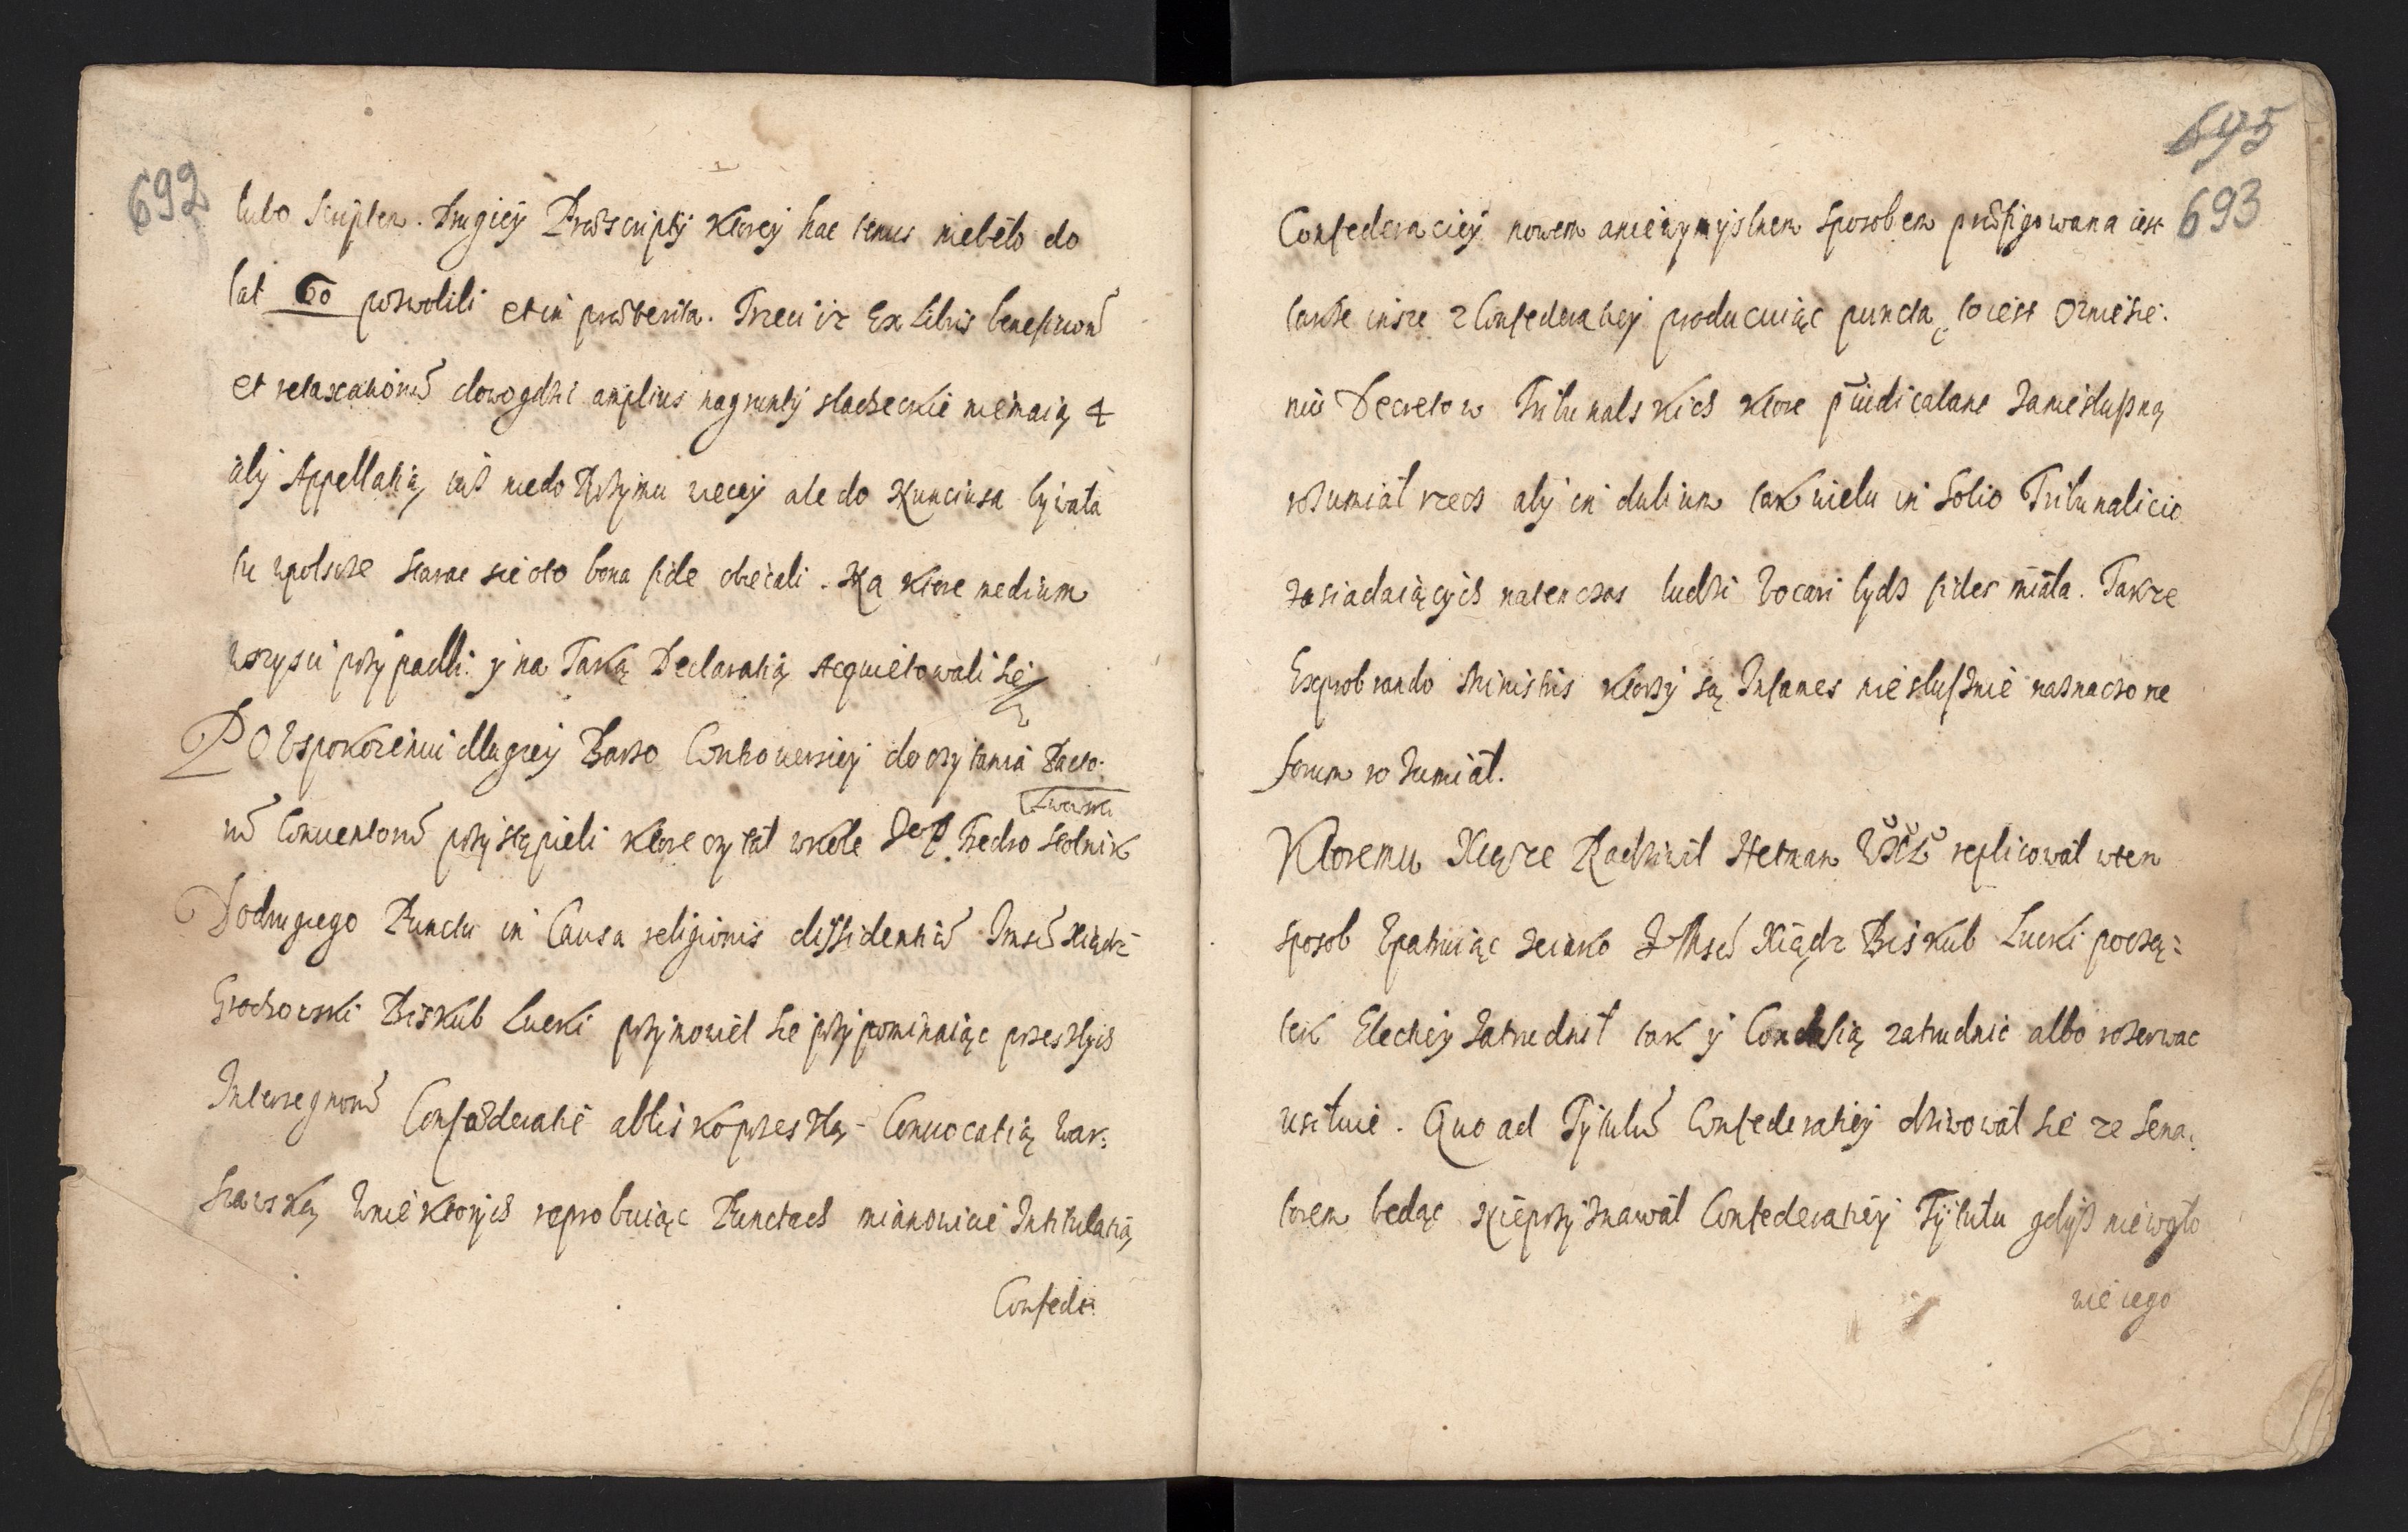 692
lubo scriptem. Drugiey Præscripty ktorey hac tenus niebeło do
lat 60 pozwolili et in præterita. Trzeci iz Ex Libris beneficiorū
et relaxationū dowogdzi amplius nagrunty slacheckie niemaią 4
aby Appellatią iuß niedo Rzymu wiecey ale do Nunciusa bywała
tu wpolscze starac sie oto bona fide obiecali. Na ktore medium
wszysci przypadli. y na Taką Declaratią Acquietowali sie
PO Uspokoieniu dlugiey Barzo Controuersiey do czytania Pacto-
rū Conuentorū przystąpieli ktore czytał wkole Je P. Fredro Stolnik
Lwowski
Do drugiego Punctu in Causa religionis dissidentiū Jmsć Xiądz
Grochowski Biskub Lucki przymowił sie przypominaiąc przeszłych
Interregnorū Confæderatie abliskoprzeszłą Conuocatią War-
szawską wniektorych reprobuiąc Punctach mianowicie Intitulatią
Confede-
695
693
Confederaciey nowem aniezwyczajnem sposobem præfigowana iest
takze insze z Confederatiey producuiąc puncta, to iest Oznieśie-
niu Decretow Tribunalskich ktore p iudicatane zanieslußną
rozumiał rzecz aby in dubium tak wielu in Solio Tribunalicio
zasiadaiących natenczas ludzi Vocari bydz fides miała. Takze
Exprobrando Ministris ktorzy są Infames niesłusznie naznaczone
forum rozumiał.
Ktoremu Xiąze Radziwił Hetman WXL replicował wten
sposob Upatruiąc zeiako JeMsć Xiądz Biskub Lucki począ-
tek Elechiey zatrudnił tak y Conclusią zatrudnic albo rozerwac
usiłuie. Quo ad Tytulū Confederatiey dziwował sie ze Sena-
torem będąc Nieprzyznawał Confederatiey Tytułu gdyß niewyto
nie iego